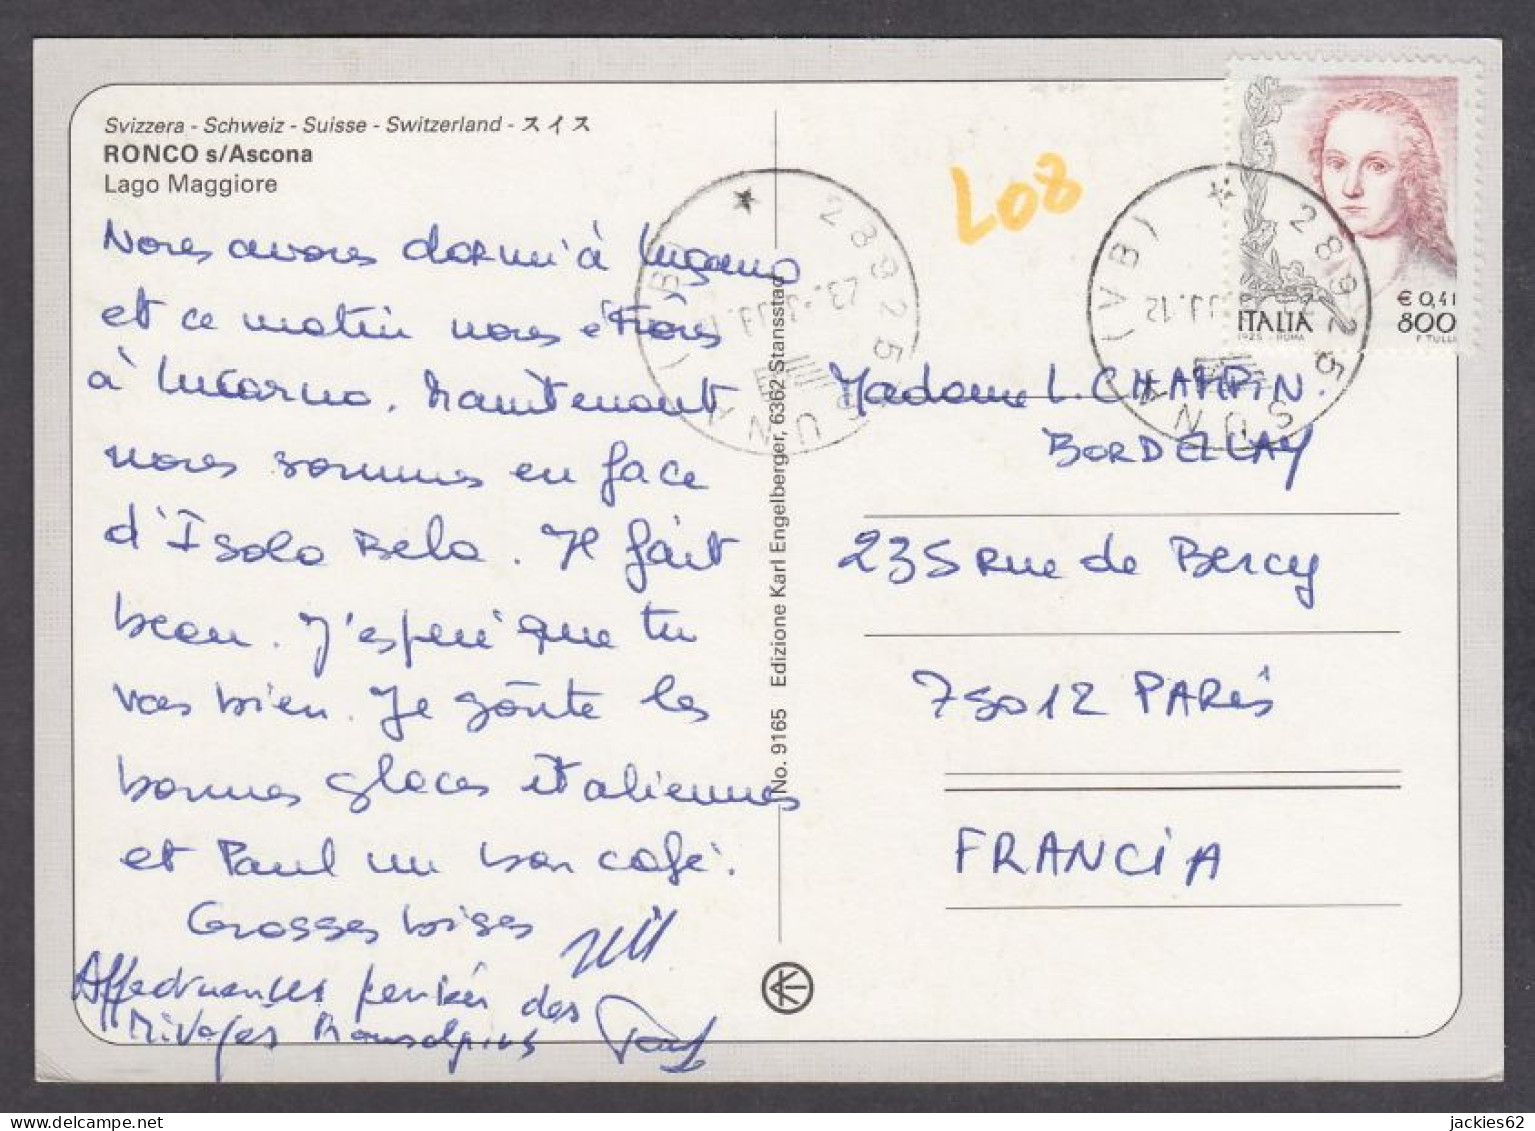 Svizzera - Schweiz - Suisse - Switzerland - スイス
RONCO s/Ascona
Lago Maggiore
Nous avons dormi à Lugano
et ce matin nous étions
à Locarno. Maintenant
nous sommes en face
d'Isola Bela. Il fait
beau. J'espere que tu
vas bien. Je goûte les
bonnes glaces italiennes
et Paul un bon café.
Grosses bises
Affectueuses pensées des
No. 9165 Edizione Karl Engelberger, 6362 Stansstad
L08
28925
SUNA (VB)
28925
SUNA (VB)
€ 0,41
800
ITALIA
Madame L. CHAMPIN.
BORDELLAY
235 Rue de Bercy
75012 PARis
FRANCiA
jackies62